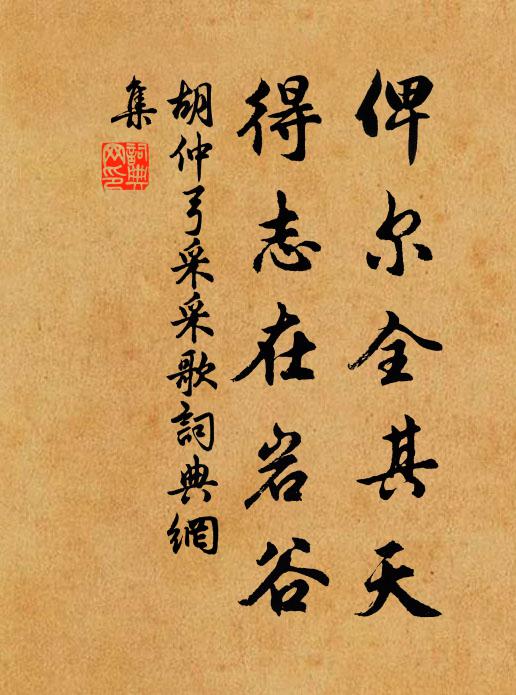 俾尔全其天
得志在岩谷
胡仲弓采采歌詞典網
集
詞典
网印